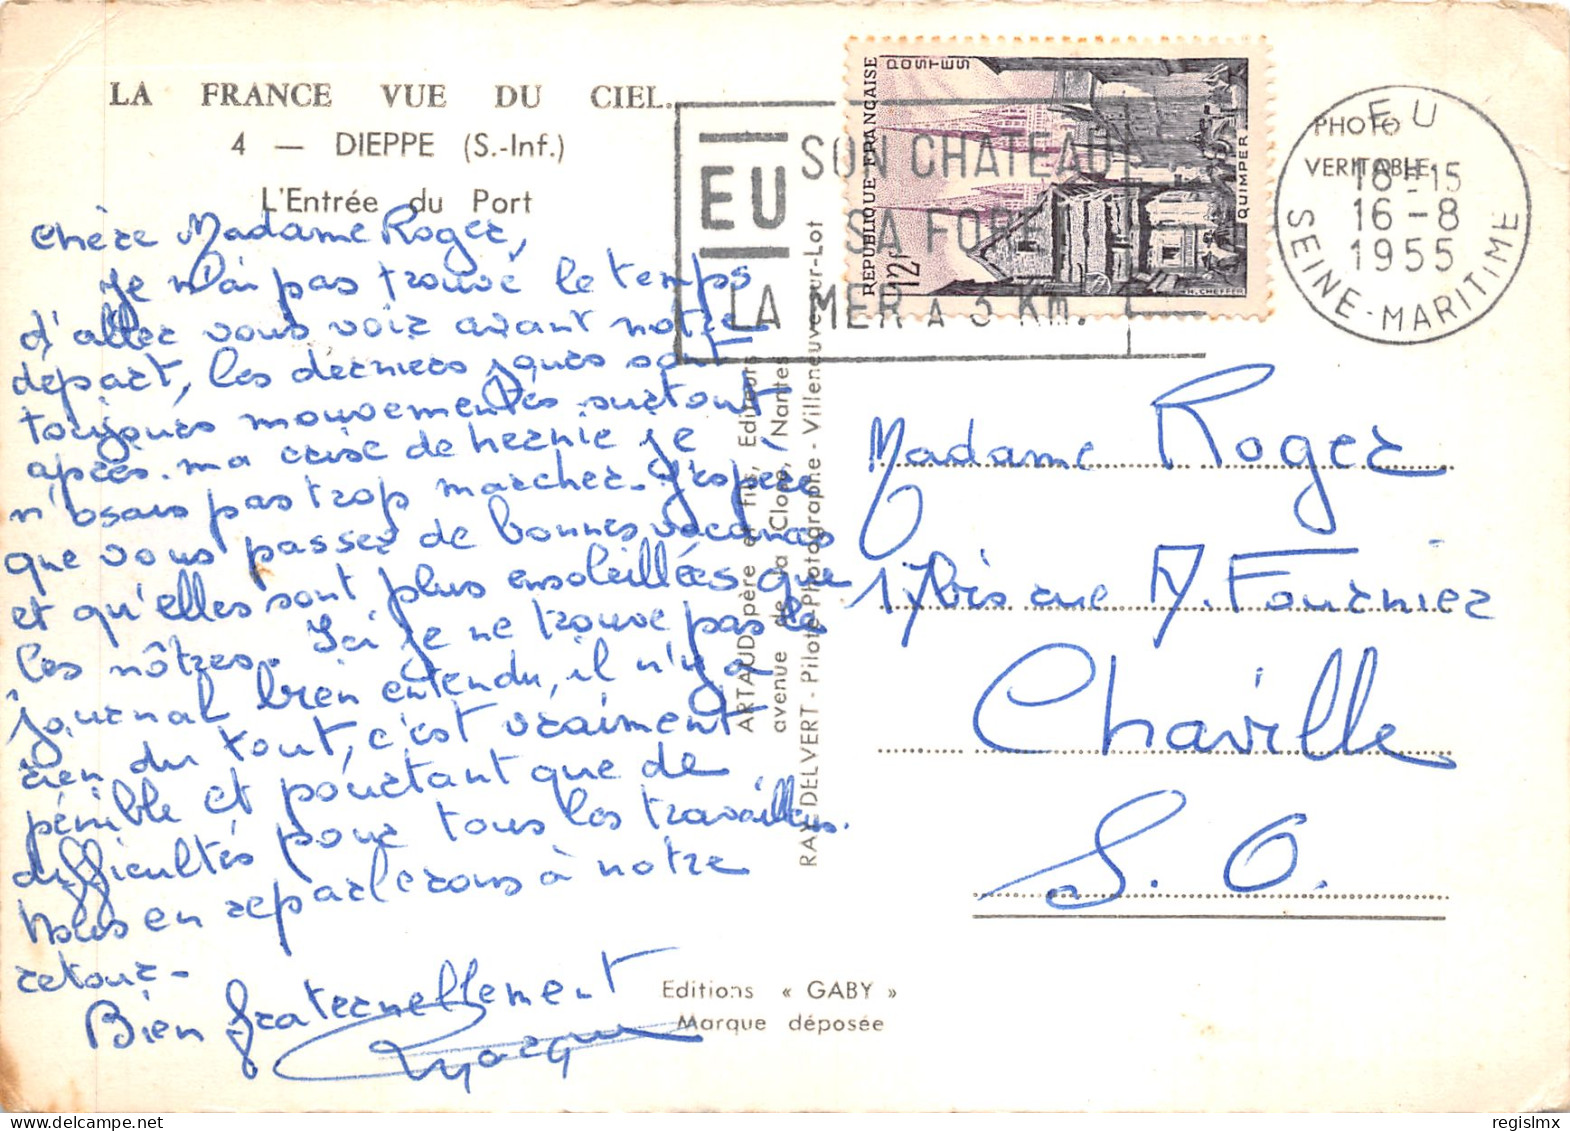 LA FRANCE VUE DU CIEL...
4 — DIEPPE (S.-Inf.)
L'Entrée du Port
Chère Madame Roger,
je n'ai pas trouvé le temps
d'aller vous voir avant notre
départ, les derniers jours sont
toujours mouvementés surtout
après ma crise de hernie je
n'osais pas trop marcher. J'espère
que vous passez de bonnes vacances
et qu'elles sont plus ensoleillées que
les nôtres. Ici je ne trouve pas le
journal bien entendu, il n'y a
rien du tout, c'est vraiment
pénible et pourtant que de
difficultés pour tous les travailleurs.
Nous en reparlerons à notre
retour -
Bien fraternellement
ARTAUD père et fils, Editeurs
avenue de la Close, Nantes
RAY DELVERT - Pilote-Photographe - Villeneuve-sur-Lot
Editions « GABY »
Marque déposée
EU
SON CHATEAU
SA FORET
LA MER A 3 Km.
REPUBLIQUE FRANÇAISE
POSTES
12F
QUIMPER
H. CHEFFER
PHOTO
VERITABLE
EU
18H15
16-8
1955
SEINE-MARITIME
Madame Roger
17bis rue A. Fournier
Chaville
S. O.
regislmx